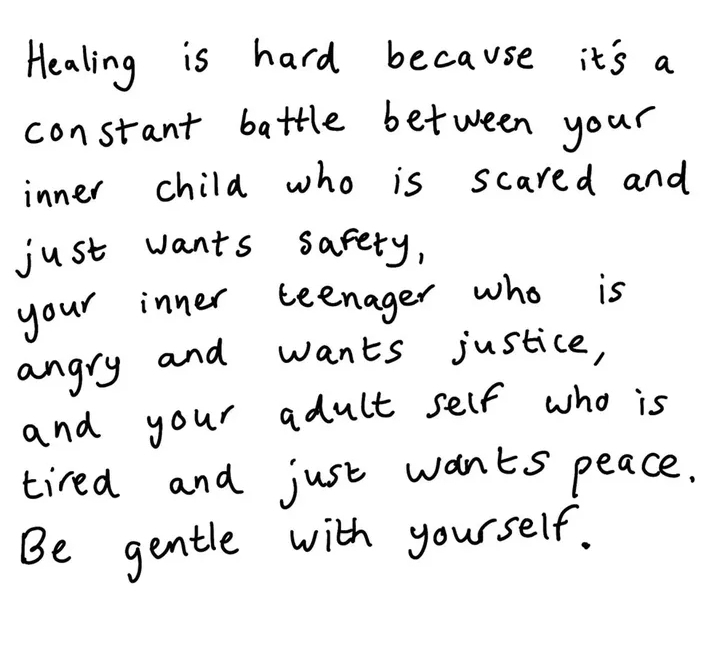 Healing is hard because it's a
constant battle between your
inner child who is scared and
just wants safety,
your inner teenager who is
angry and wants justice,
and your adult self who is
tired and just wants peace.
Be gentle with yourself.